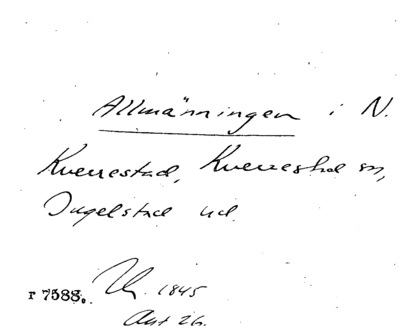 Allmänningen i N.
Kverrestad, Kverrestad sn,
Ingelstad hd.
r 7588. 1845
Akt 26.